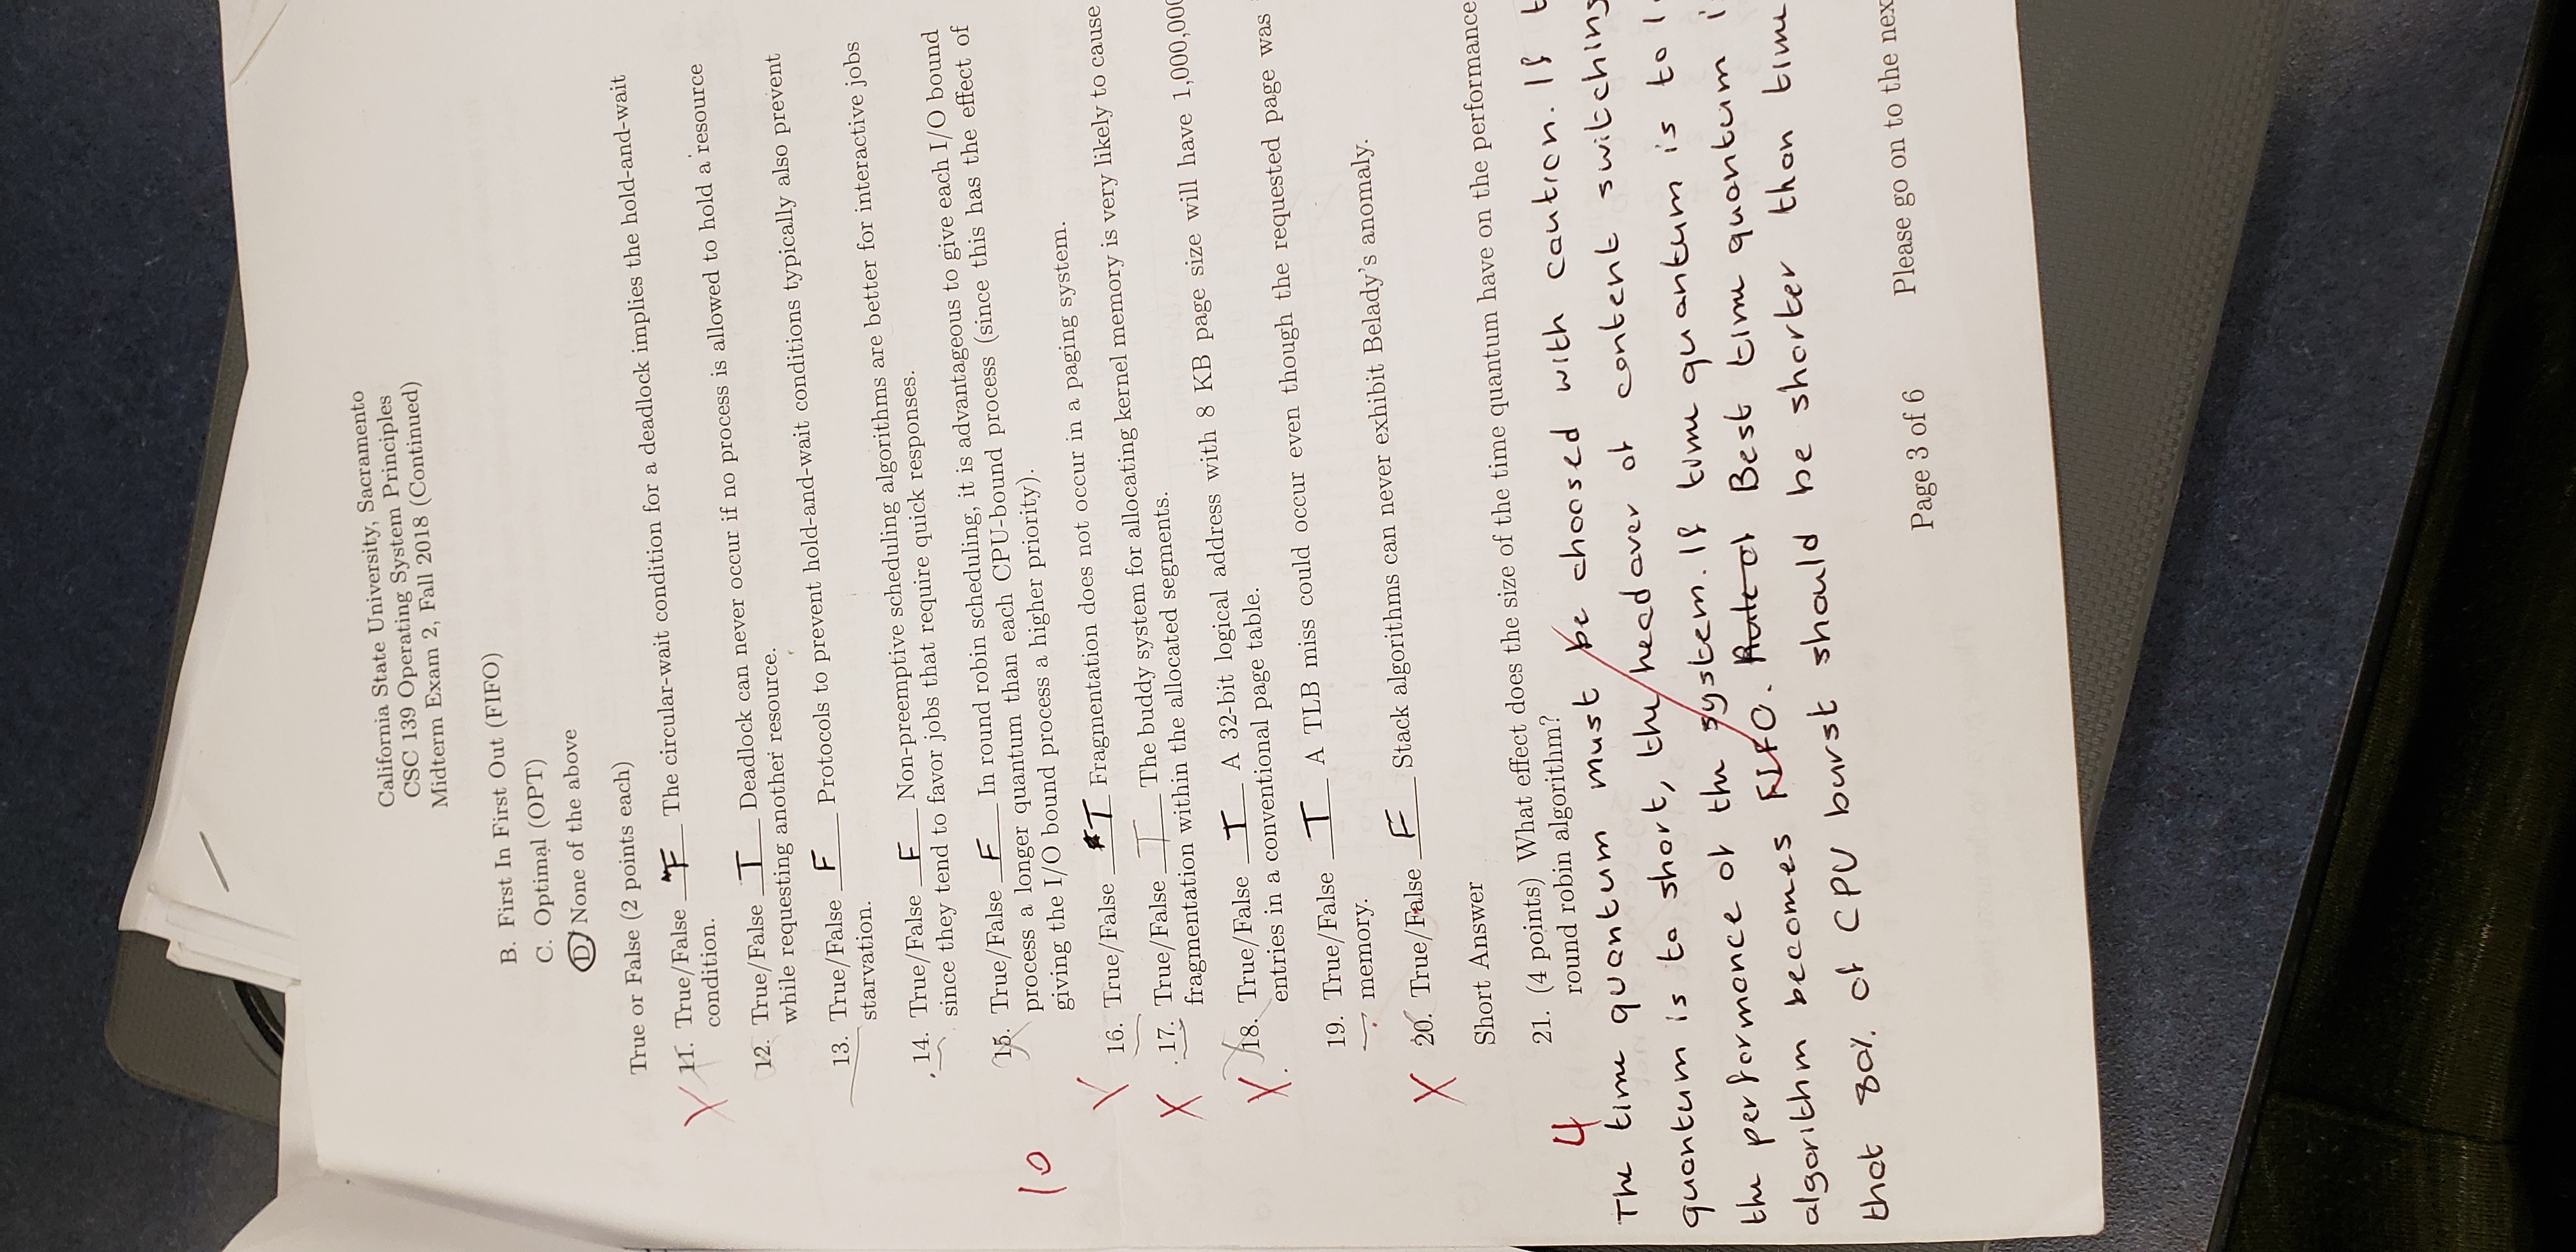 California State University, Sacramento
CSC 139 Operating System Principles
Midterm Exam 2, Fall 2018 (Continued)
B. First In First Out (FIFO)
C. Optimal (OPT)
D. None of the above
True or False (2 points each)
X 11. True/False F The circular-wait condition for a deadlock implies the hold-and-wait
condition.
12. True/False T Deadlock can never occur if no process is allowed to hold a resource
while requesting another resource.
13. True/False F Protocols to prevent hold-and-wait conditions typically also prevent
starvation.
14. True/False F Non-preemptive scheduling algorithms are better for interactive jobs
since they tend to favor jobs that require quick responses.
15. True/False F In round robin scheduling, it is advantageous to give each I/O bound
process a longer quantum than each CPU-bound process (since this has the effect of
10 giving the I/O bound process a higher priority).
X 16. True/False T Fragmentation does not occur in a paging system.
X 17. True/False T The buddy system for allocating kernel memory is very likely to cause
fragmentation within the allocated segments.
X 18. True/False T A 32-bit logical address with 8 KB page size will have 1,000,000
entries in a conventional page table.
19. True/False T A TLB miss could occur even though the requested page was
memory.
X 20. True/False F Stack algorithms can never exhibit Belady's anomaly.
Short Answer
21. (4 points) What effect does the size of the time quantum have on the performance
4 round robin algorithm?
The time quantum must be choosed with caution. If t
quantum is to short, the head over of content switching
the performance of the system. If time quantum is to l
algorithm becomes FIFO. Rule of Best time quantum i
that 80% of CPU burst should be shorter than time
Page 3 of 6 Please go on to the nex